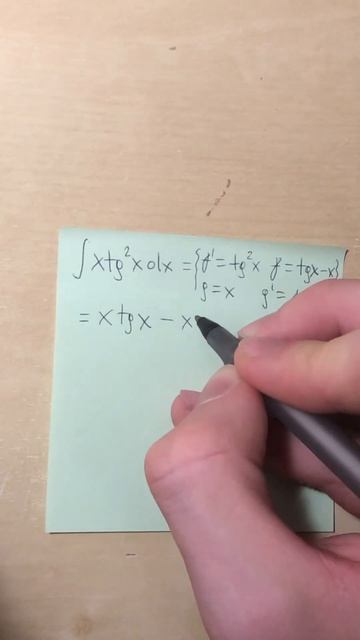 ∫ x tg²x dx = { f' = tg²x f = tgx - x }
g = x g' =
= x tgx - x